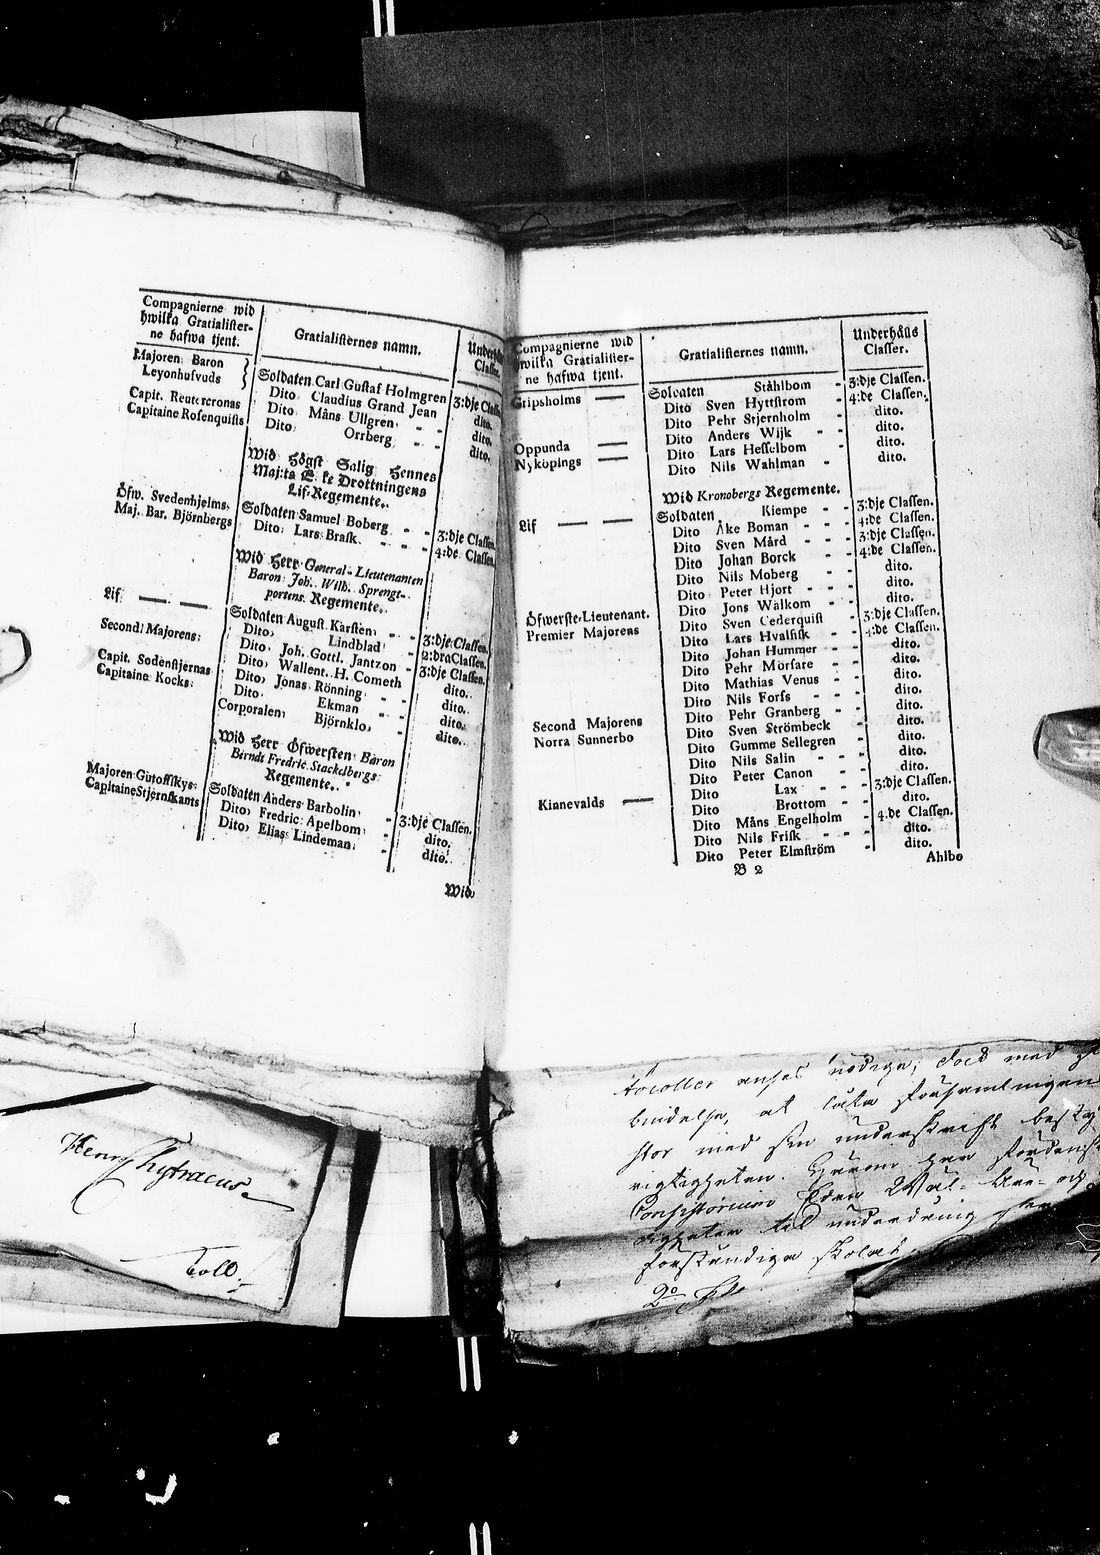 Compagnierne wid
hwilka Gratialister-
ne hafwa tjent.
Gratialisternes namn.
Underhålls
Classer.
Majoren Baron
Leyonhufvuds
Soldaten Carl Gustaf Holmgren 3:dje Classen
Dito Claudius Grand Jean dito.
Capit. Reutercronas Dito Måns Ullgren - - dito.
Capitaine Rosenquists Dito Orrberg - - dito.
Wid Högst Salig Hennes
Maj:ts E. ke Drottningens
Lif-Regemente.
Öfw. Svedenhjelms Soldaten Samuel Boberg - - 3:dje Classen.
Maj. Bar. Björnbergs Dito Lars Brask - - - 4:de Classen.
Wid Herr General-Lieutenanten
Baron Joh. Wilh. Sprengt-
portens Regemente.
Lif — — Soldaten August Karsten - - 3:dje Classen.
Dito Lindblad - 2:dra Classen.
Second Majorens Dito Joh. Gottl. Jantzon - 3:dje Classen.
Dito Wallent. H. Cometh dito.
Capit. Sodenstjernas Dito Jonas Rönning - - dito.
Capitaine Kocks Dito Ekman - - dito.
Corporalen Björnklo - dito.
Wid Herr Öfwersten Baron
Berndt Fredric Stackelbergs
Regemente.
Majoren Gutoffskys Soldaten Anders Barbolin - 3:dje Classen.
Capitaine Stjernskants Dito Fredric Apelbom - dito.
Dito Elias Lindeman - dito.
Wid
Compagnierne wid
hwilka Gratialister-
ne hafwa tjent.
Gratialisternes namn.
Underhålls
Classer.
Gripsholms — Soldaten Ståhlbom - 3:dje Classen.
Dito Sven Hyttstrom - 4:de Classen.
Dito Pehr Stjernholm - dito.
Oppunda — Dito Anders Wijk - - dito.
Nyköpings — Dito Lars Hesselbom - dito.
Dito Nils Wahlman - dito.
Wid Kronobergs Regemente.
Lif — — Soldaten Kiempe - - 3:dje Classen.
Dito Åke Boman - - - 4:de Classen.
Dito Sven Mård - - - 3:dje Classen.
Dito Johan Borck - - 4:de Classen.
Dito Nils Moberg - - dito.
Dito Peter Hjort - - - dito.
Öfwerste-Lieutenant. Dito Jons Walkom - - dito.
Premier Majorens Dito Sven Cederquist - 3:dje Classen.
Dito Lars Hvalfisk - - 4:de Classen.
Dito Johan Hummer - - dito.
Dito Pehr Mörsare - - dito.
Dito Mathias Venus - - dito.
Dito Nils Forss - - - dito.
Second Majorens Dito Pehr Granberg - - dito.
Norra Sunnerbo Dito Sven Strömbeck - dito.
Dito Gumme Sellegren - dito.
Dito Nils Salin - - - dito.
Dito Peter Canon - - dito.
Kinnevalds — Dito Lax - - - 3:dje Classen.
Dito Brottom - - dito.
Dito Måns Engelholm - 4:de Classen.
Dito Nils Frisk - - - dito.
Dito Peter Elmström - dito.
B 2
Ahlbo
anses nödige; dock med
bindelse, at låta församlingen
med sin underskrift
rigtigheten.
Consistorium
til underdånig
forständiga
2o